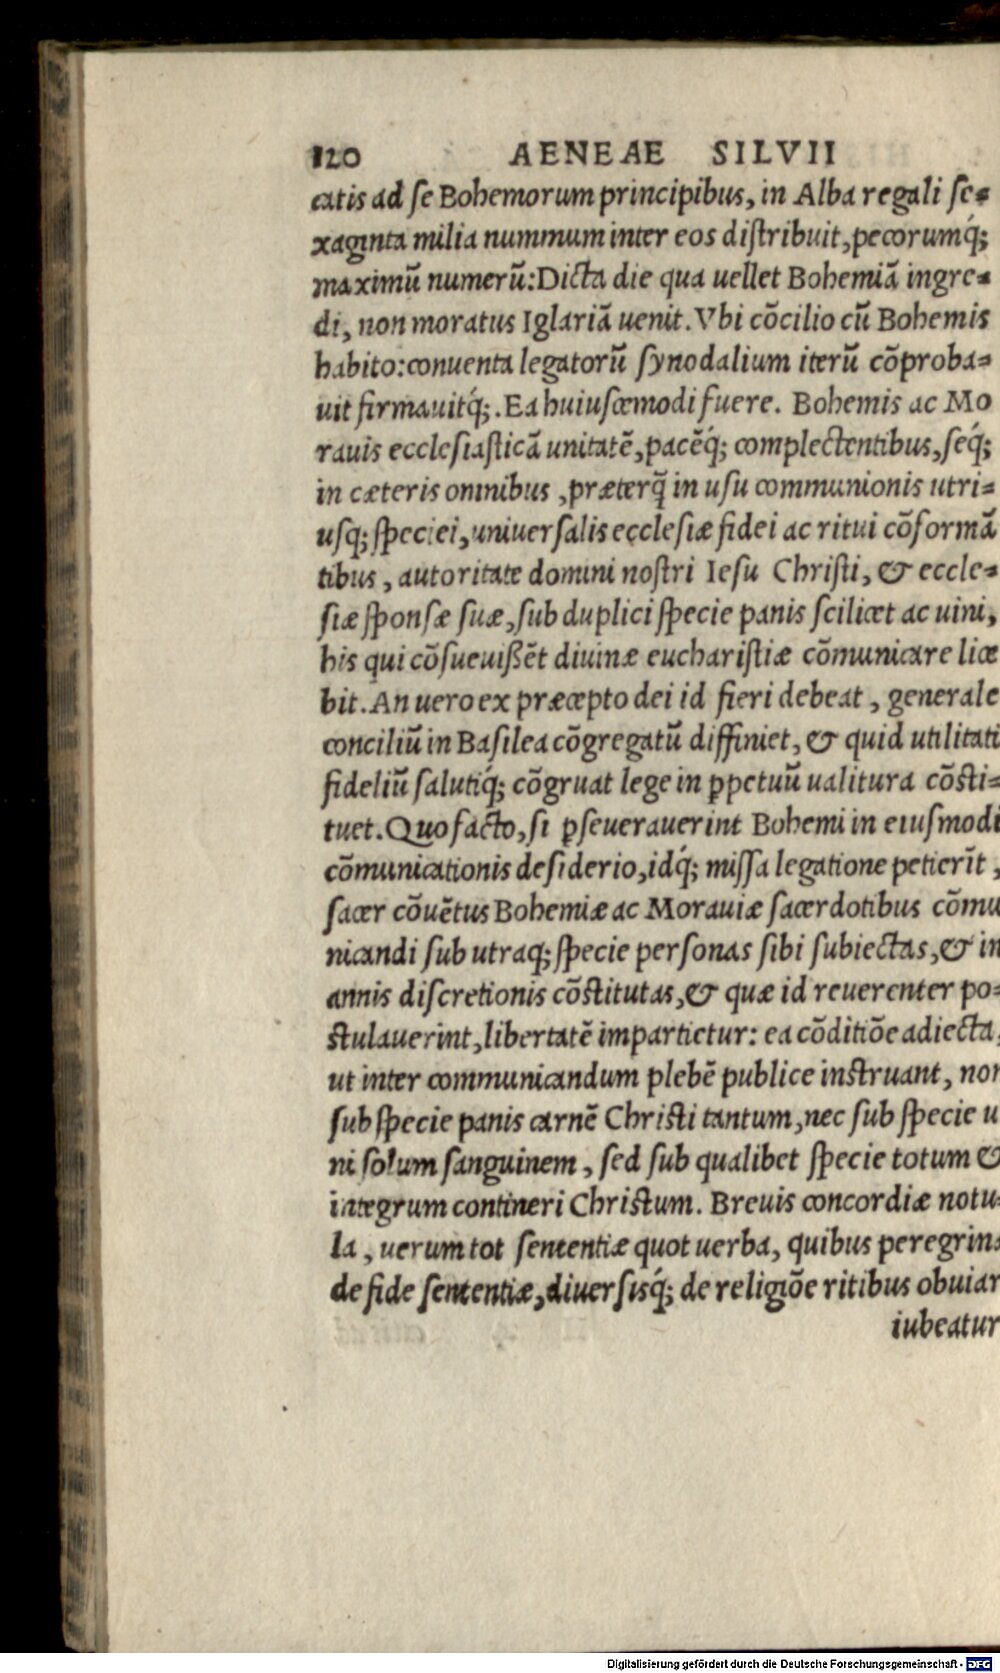 120 AENEAE SILVII
catis ad se Bohemorum principibus, in Alba regali se-
xaginta milia nummum inter eos distribuit, pecorumq́;
maximū numerū: Dicta die qua uellet Bohemiā ingre-
di, non moratus Iglariā uenit. Vbi cōcilio cū Bohemis
habito: conuenta legatorū synodalium iterū cōproba-
uit firmauitq́;. Ea huiuscemodi fuere. Bohemis ac Mo
rauis ecclesiasticā unitatē, pacēq́; complectentibus, seq́;
in cæteris omnibus, præterq̄ in usu communionis utri-
usq; speciei, uniuersalis ecclesiæ fidei ac ritui cōformā
tibus, autoritate domini nostri Iesu Christi, & eccle-
siæ sponsæ suæ, sub duplici specie panis scilicet ac uini,
his qui cōsueuißēt diuinæ eucharistiæ cōmunicare lice
bit. An uero ex præcepto dei id fieri debeat, generale
conciliū in Basilea cōgregatū diffiniet, & quid utilitati
fideliū salutiq́; cōgruat lege in ꝑpetuū ualitura cōsti-
tuet. Quo facto, si ꝑseuerauerint Bohemi in eiusmodi
cōmunicationis desiderio, idq́; missa legatione petierīt,
sacer cōuētus Bohemiæ ac Morauiæ sacerdotibus cōmu
nicandi sub utraq; specie personas sibi subiectas, & in
annis discretionis cōstitutas, & quæ id reuerenter po-
stulauerint, libertatē impartietur: ea cōditiōe adiecta,
ut inter communicandum plebē publice instruant, non
sub specie panis carnē Christi tantum, nec sub specie u
ni solum sanguinem, sed sub qualibet specie totum &
integrum contineri Christum. Breuis concordiæ notu-
la, uerum tot sententiæ quot uerba, quibus peregrinæ
de fide sententiæ, diuersisq́; de religiōe ritibus obuiar
iubeatur
Digitalisierung gefördert durch die Deutsche Forschungsgemeinschaft - DFG